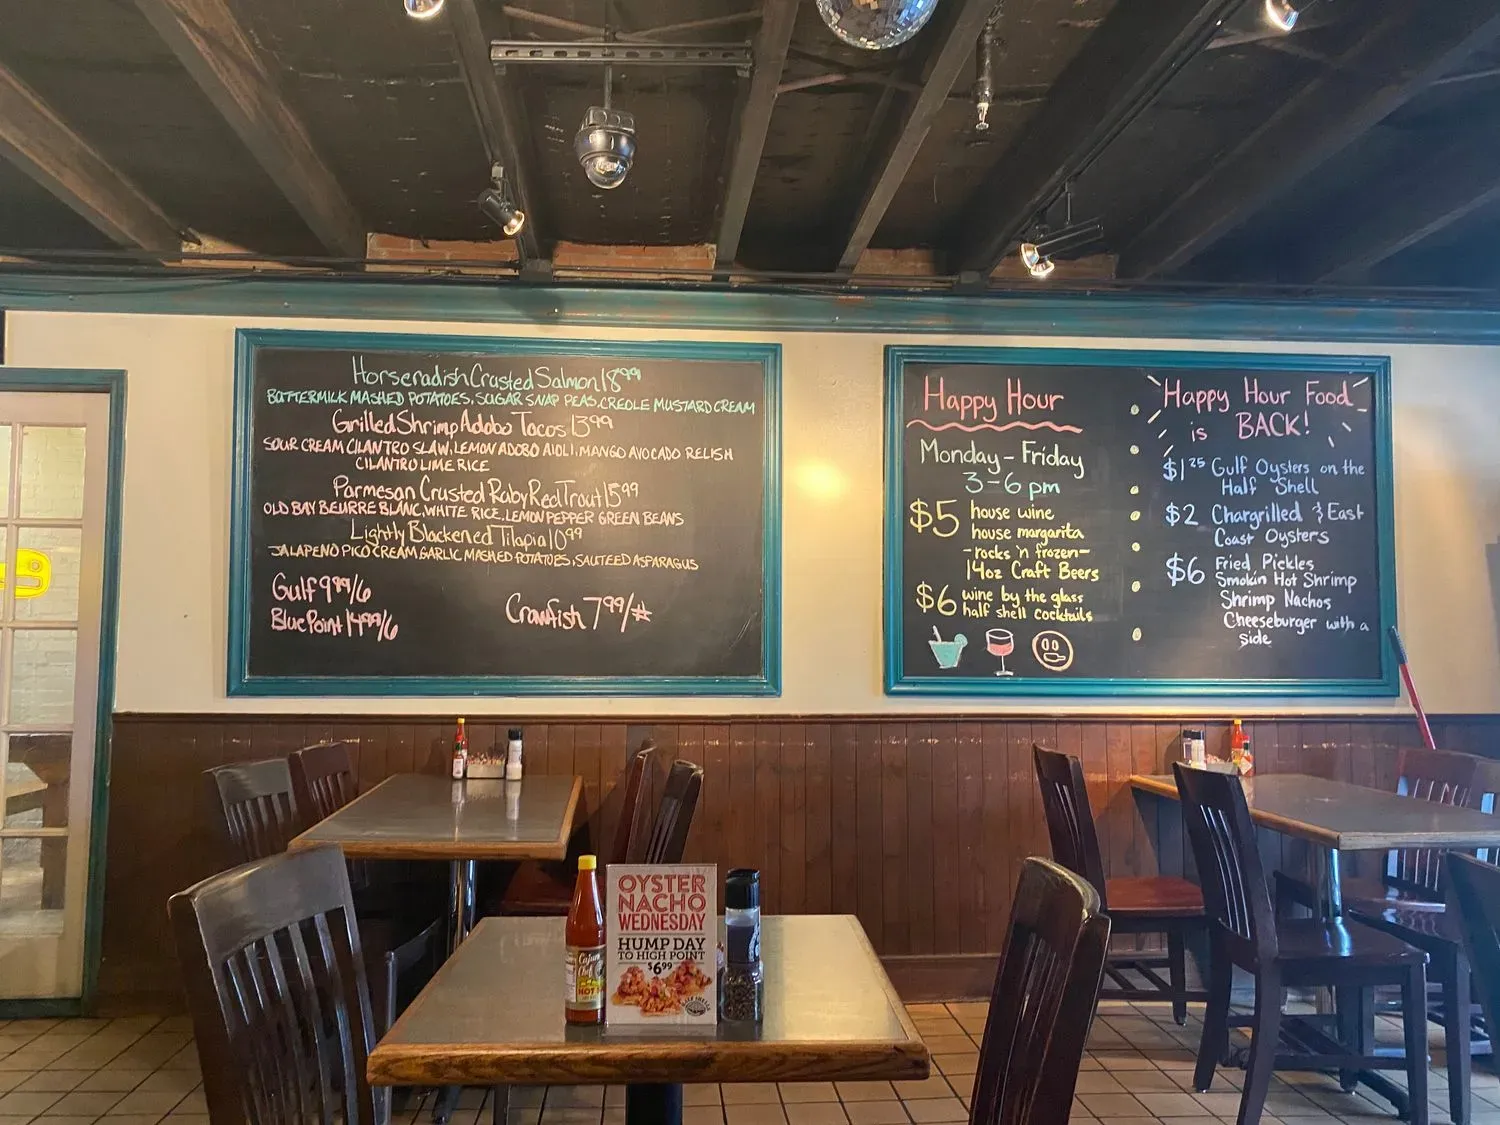 Horseradish Crusted Salmon 18⁹⁹
BUTTERMILK MASHED POTATOES, SUGAR SNAP PEAS, CREOLE MUSTARD CREAM
Grilled Shrimp Adobo Tacos 13⁹⁹
SOUR CREAM CILANTRO SLAW, LEMON ADOBO AIOLI, MANGO AVOCADO RELISH
CILANTRO LIME RICE
Parmesan Crusted Ruby Red Trout 15⁹⁹
OLD BAY BEURRE BLANC, WHITE RICE, LEMON PEPPER GREEN BEANS
Lightly Blackened Tilapia 10⁹⁹
JALAPEÑO PICO CREAM GARLIC MASHED POTATOES, SAUTEED ASPARAGUS
Gulf 9⁹⁹/6
Blue Point 14⁹⁹/6
Crawfish 7⁹⁹/#
Happy Hour
Monday - Friday
3-6 pm
$5 house wine
house margarita
-rocks 'n frozen-
14oz Craft Beers
$6 wine by the glass
half shell cocktails
Happy Hour Food
is BACK!
$1²⁵ Gulf Oysters on the
Half Shell
$2 Chargrilled & East
Coast Oysters
$6 Fried Pickles
Smokin Hot Shrimp
Shrimp Nachos
Cheeseburger with a
side
OYSTER
NACHO
WEDNESDAY
HUMP DAY
TO HIGH POINT
$6⁹⁹
Cajun
Chef
HOT